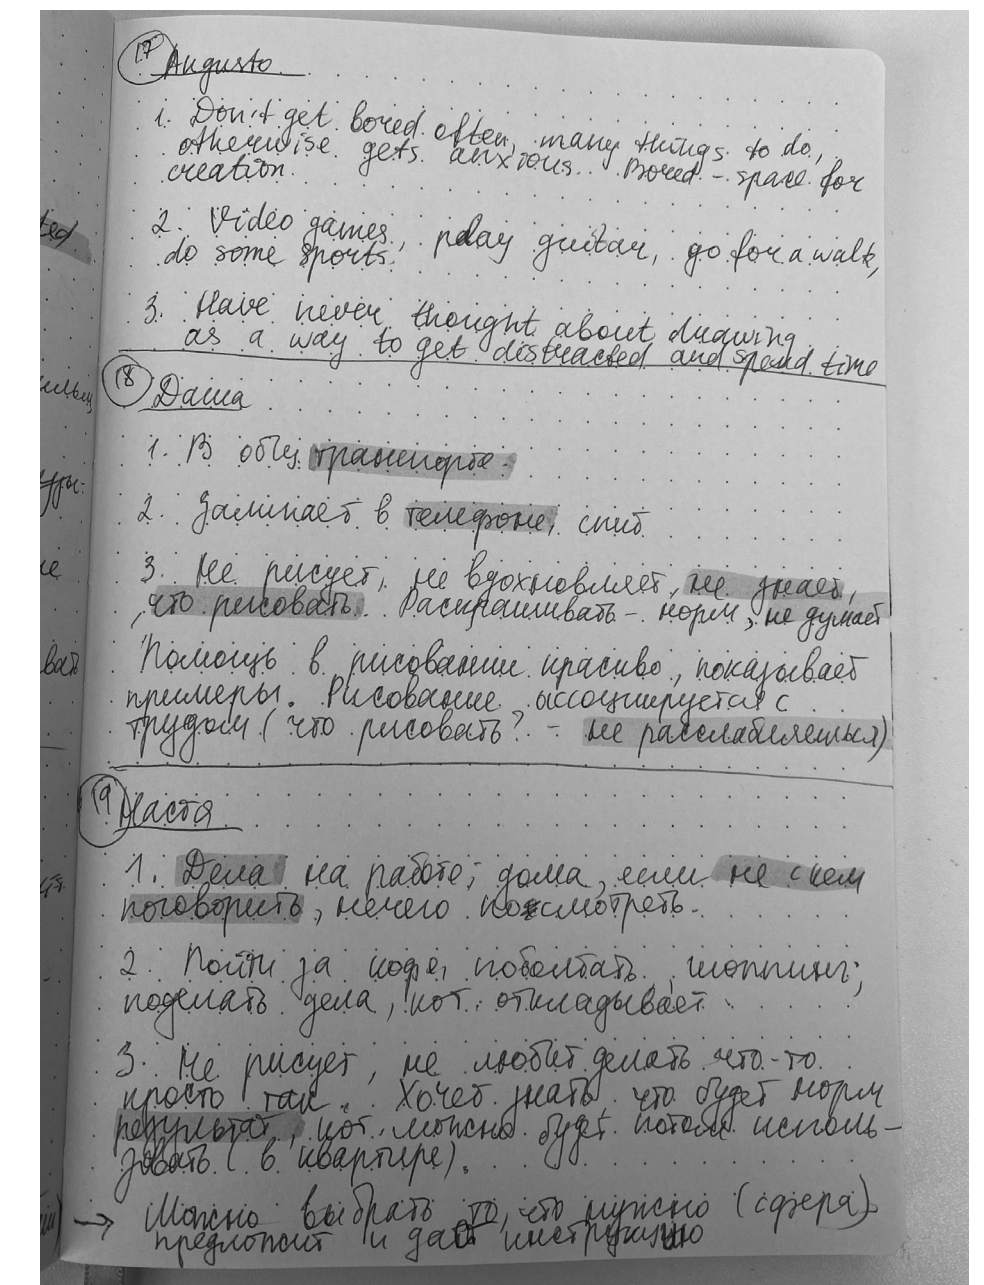 17 Augusto
1. Don't get bored often, many things to do,
otherwise gets anxious. Bored - space for
creation.
2. Video games, play guitar, go for a walk,
do some sports.
3. Have never thought about drawing
as a way to get distracted and spend time
18 Даша
1. В общ. транспорте.
2. Залипает в телефоне, спит
3. Не рисует, не вдохновляет, не знает,
что рисовать. Распрашивать - норм, не думает
Помощь в рисовании красиво, показывает
примеры. Рисование ассоциируется с
трудом (что рисовать? - не расслабляешься)
19 Настя
1. Дела на работе; дома, если не с кем
поговорить, нечего посмотреть.
2. Пойти за кофе, поболтать, шоппинг;
поделать дела, кот. откладывает
3. Не рисует, не любит делать что-то
просто так. Хочет знать что будет норм
результат, кот. можно будет потом исполь-
зовать (в квартире).
→ Можно выбрать то, что нужно (сфера)
предложит и даст инструкцию
ted